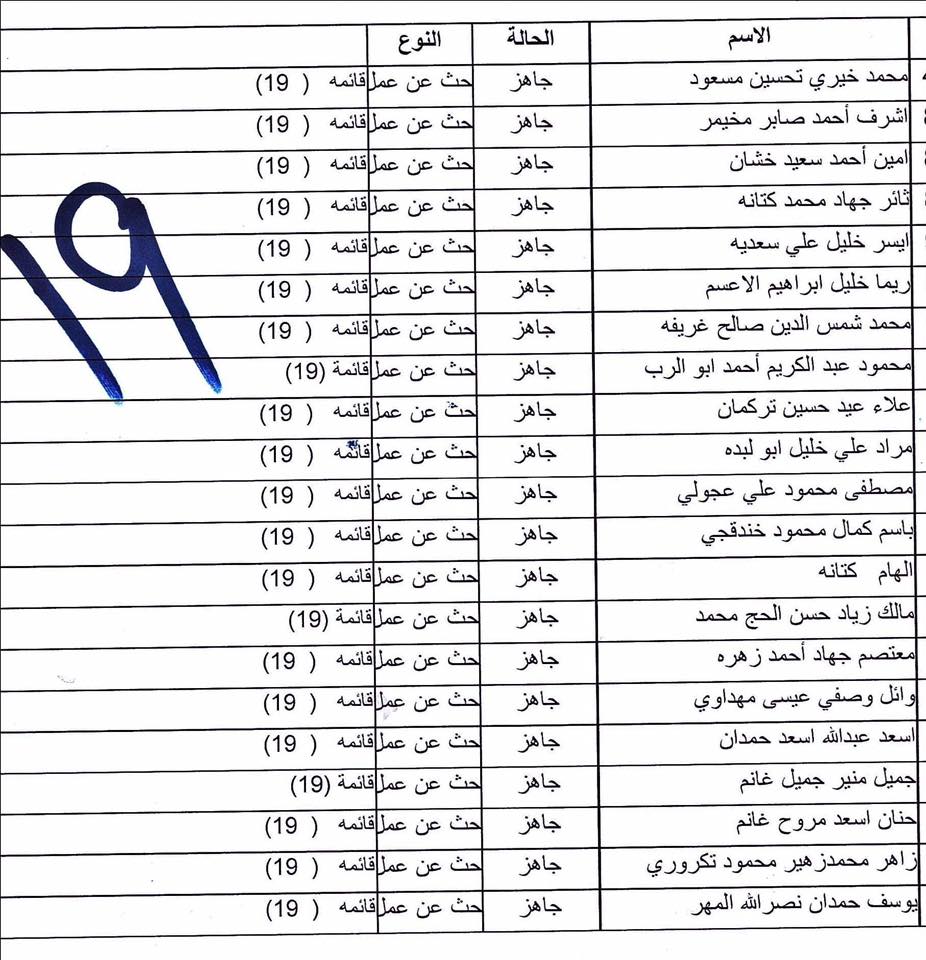 الاسم الحالة النوع
محمد خيري تحسين مسعود جاهز حث عن عمل قائمه ( 19)
اشرف أحمد صابر مخيمر جاهز حث عن عمل قائمه ( 19)
امين أحمد سعيد خشان جاهز حث عن عمل قائمه ( 19)
ثائر جهاد محمد كتانه جاهز حث عن عمل قائمه ( 19)
ايسر خليل علي سعديه جاهز حث عن عمل قائمه ( 19)
ريما خليل ابراهيم الاعسم جاهز حث عن عمل قائمه ( 19)
محمد شمس الدين صالح غريفه جاهز حث عن عمل قائمه ( 19)
محمود عبد الكريم أحمد ابو الرب جاهز حث عن عمل قائمة (19)
علاء عيد حسين تركمان جاهز حث عن عمل قائمه ( 19)
مراد علي خليل ابو لبده جاهز حث عن عمل قائمه ( 19)
مصطفى محمود علي عجولي جاهز حث عن عمل قائمه ( 19)
باسم كمال محمود خندقجي جاهز حث عن عمل قائمه ( 19)
الهام كتانه جاهز حث عن عمل قائمه ( 19)
مالك زياد حسن الحج محمد جاهز حث عن عمل قائمة (19)
معتصم جهاد أحمد زهره جاهز حث عن عمل قائمه ( 19)
وائل وصفي عيسى مهداوي جاهز حث عن عمل قائمه ( 19)
اسعد عبدالله اسعد حمدان جاهز حث عن عمل قائمه ( 19)
جميل منير جميل غانم جاهز حث عن عمل قائمة (19)
حنان اسعد مروح غانم جاهز حث عن عمل قائمه ( 19)
زاهر محمدزهير محمود تكروري جاهز حث عن عمل قائمه ( 19)
يوسف حمدان نصرالله المهر جاهز حث عن عمل قائمه ( 19)
١٩